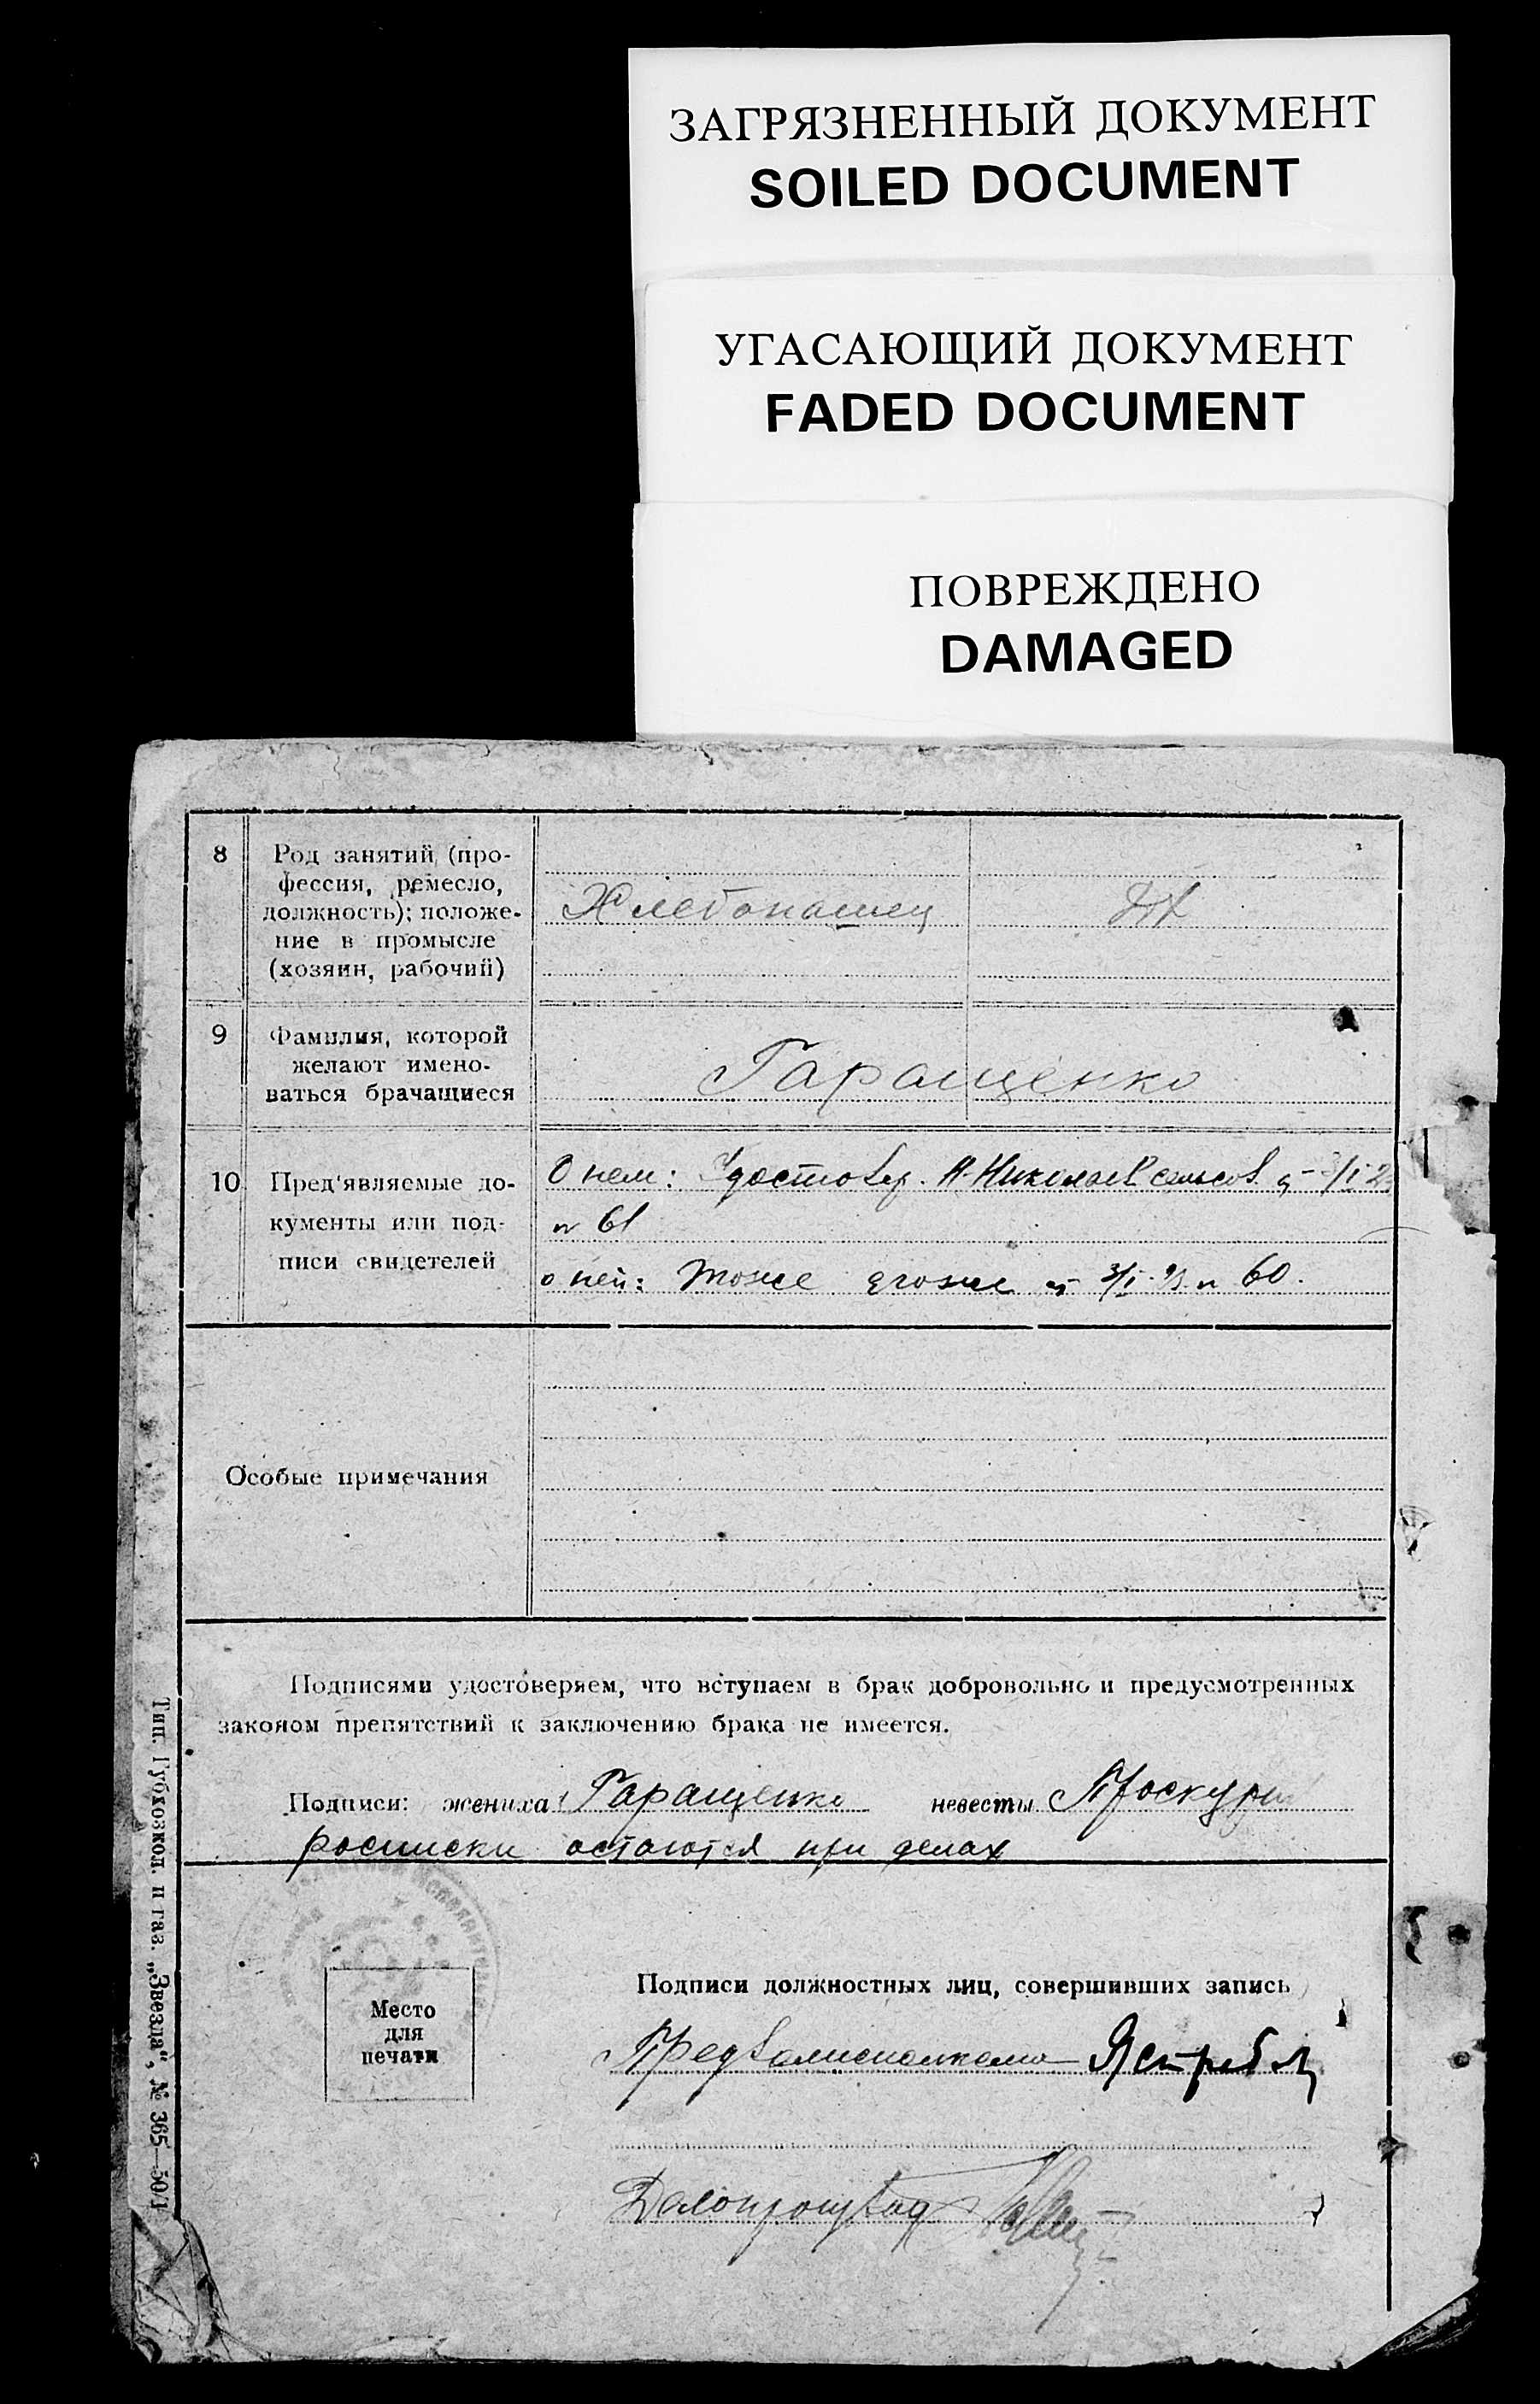 ЗАГРЯЗНЕННЫЙ ДОКУМЕНТ
SOILED DOCUMENT
УГАСАЮЩИЙ ДОКУМЕНТ
FADED DOCUMENT
ПОВРЕЖДЕНО
DAMAGED
8
Род занятий (про-
фессия, ремесло,
должность); положе-
ние в промысле
(хозяин, рабочий)
Хлебопашец
9
Фамилия, которой
желают имено-
ваться брачащиеся
Гаращенко
10
Пред'являемые до-
кументы или под-
писи свидетелей
О нем: Удостовер. Н-Николаев сельсов.
№ 61
о ней: тоже 3/I № 60.
Особые примечания
Подписями удостоверяем, что вступаем в брак добровольно и предусмотренных
законом препятствий к заключению брака не имеется.
Подписи: жениха Гаращенко невесты Проскури
росписки остаются при делах
Место
для
печати
Подписи должностных лиц, совершивших запись
Предволисполкома
Делопроизвод
Тип. Губхозкол. и газ. „Звезда“, № 365—50/1